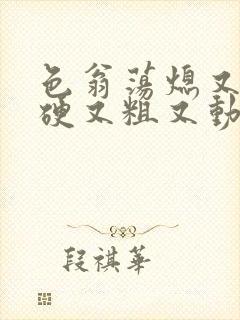 色翁荡熄又
硬又粗又動
段祺華